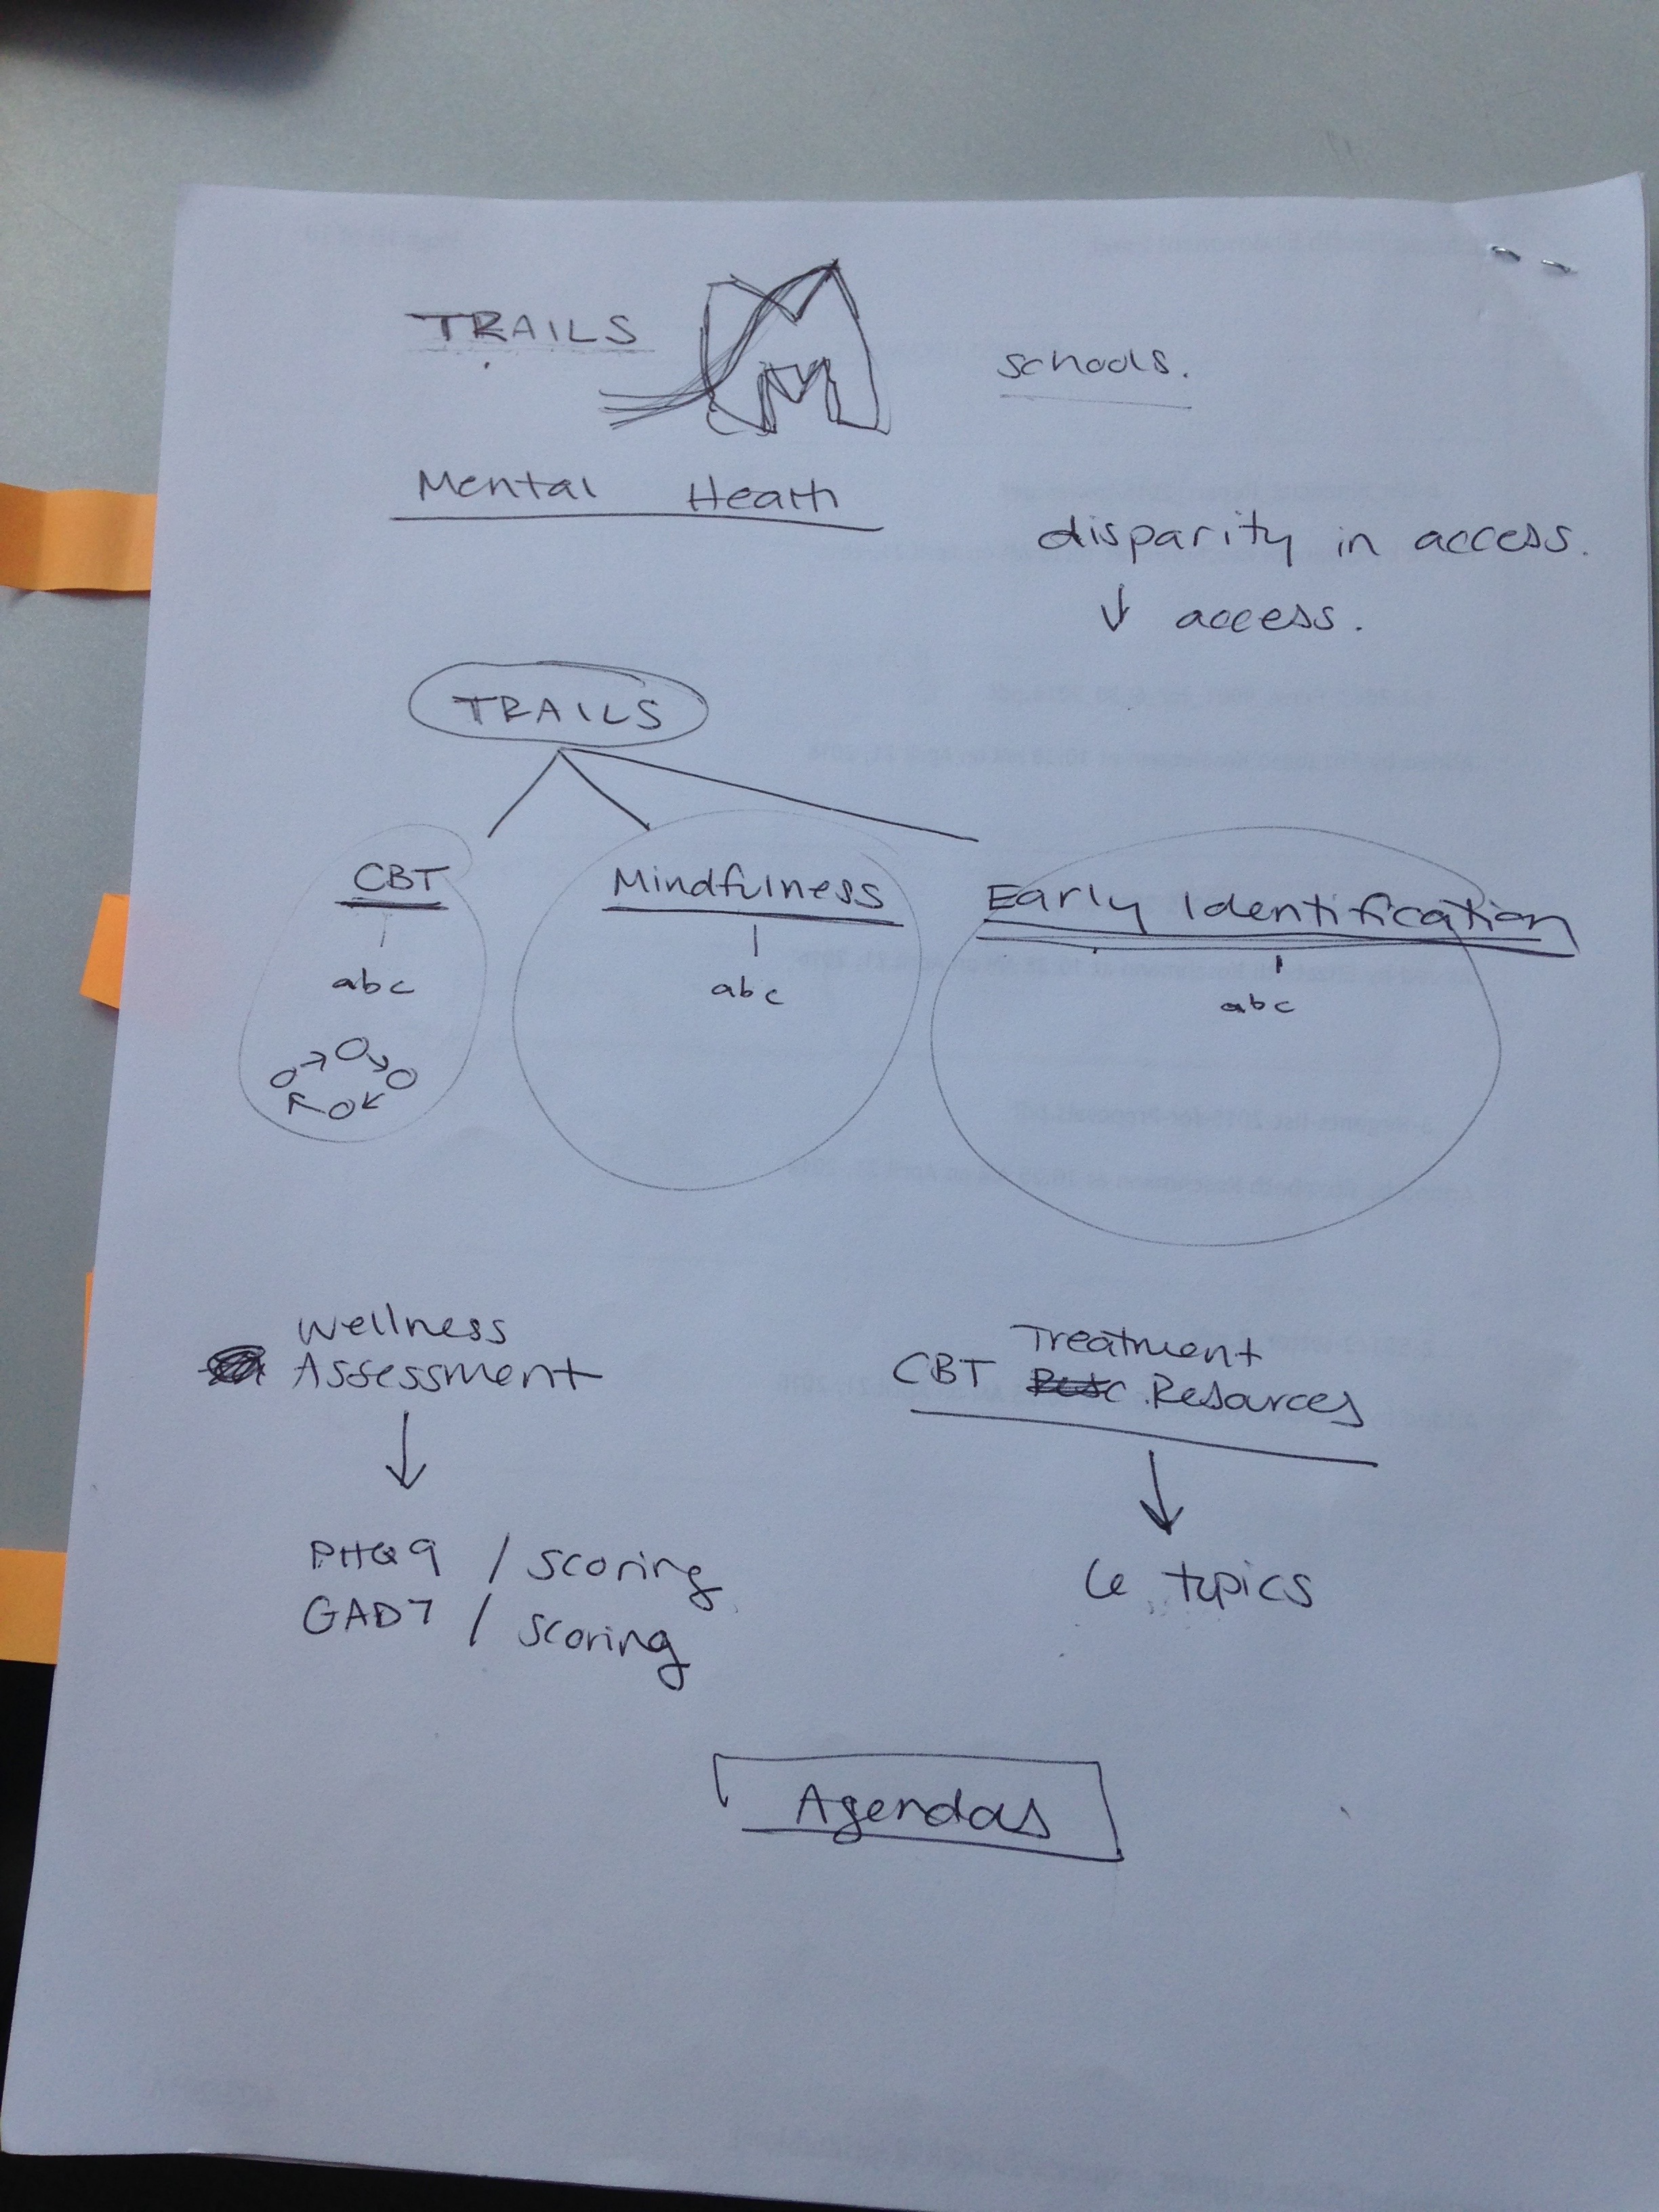 TRAILS
M
schools.
Mental Heath
disparity in access.
↓ access.
TRAILS
CBT
Mindfulness
Early Identification
abc
abc
abc
Wellness
Assessment
Treatment
CBT Resources
PHQ9 / scoring
GAD7 / scoring
6 topics
Agendas